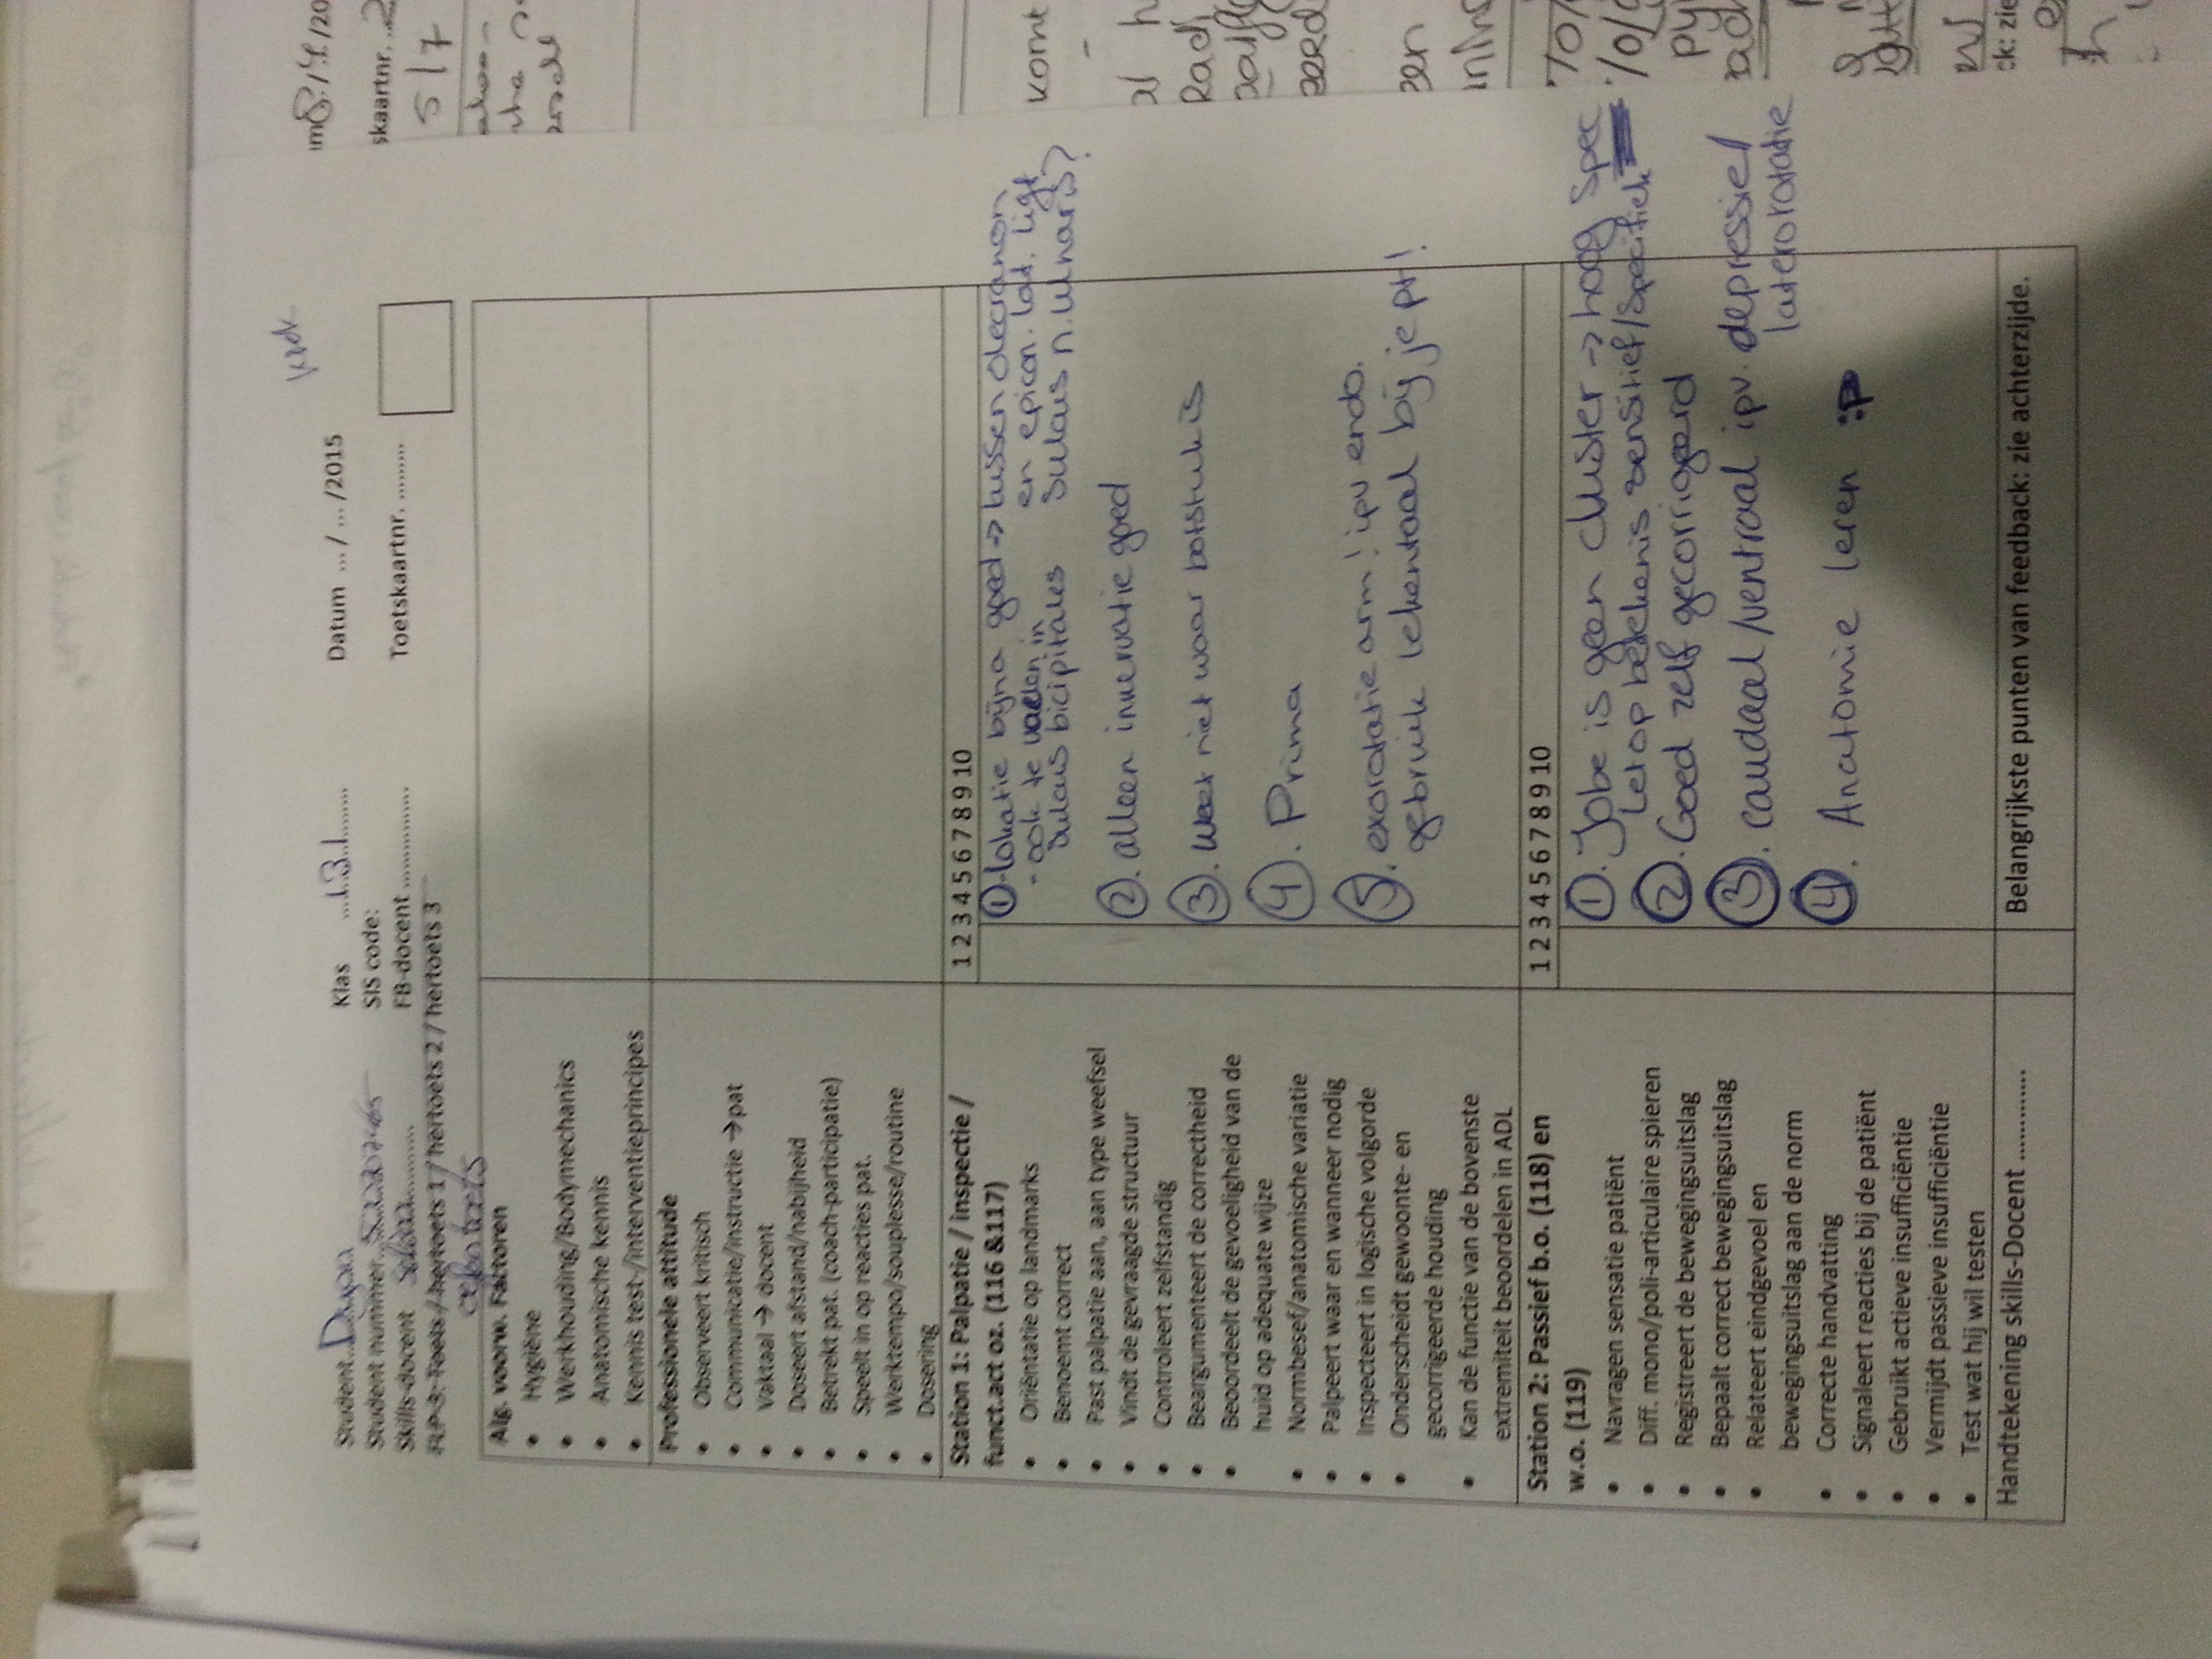 kock
Student: Dayon Klas ...131......... Datum .../ ... /2015
Student nummer SIS code:
Skills-docent FB-docent ............... Toetskaartnr. .........
FLP-3: Toets / hertoets 1 / hertoets 2 / hertoets 3
oefentoets
Alg. voorw. Factoren
• Hygiëne
• Werkhouding/Bodymechanics
• Anatomische kennis
• Kennis test-/interventieprincipes
Professionele attitude
• Observeert kritisch
• Communicatie/instructie →pat
• Vaktaal → docent
• Doseert afstand/nabijheid
• Betrekt pat. (coach-participatie)
• Speelt in op reacties pat.
• Werktempo/souplesse/routine
• Dosering
Station 1: Palpatie / inspectie /
funct.act oz. (116 &117)
• Oriëntatie op landmarks
• Benoemt correct
• Past palpatie aan, aan type weefsel
• Vindt de gevraagde structuur
• Controleert zelfstandig
• Beargumenteert de correctheid
• Beoordeelt de gevoeligheid van de
huid op adequate wijze
• Normbesef/anatomische variatie
• Palpeert waar en wanneer nodig
• Inspecteert in logische volgorde
• Onderscheidt gewoonte- en
gecorrigeerde houding
• Kan de functie van de bovenste
extremiteit beoordelen in ADL
1 2 3 4 5 6 7 8 9 10
① lokatie bijna goed → tussen olecranon
- ook te voelen in en epicon. lat. ligt
sulcus bicipitales sulcus n. ulnaris?
②. alleen innervatie goed
③. weet niet waar botstuk is
④. Prima
⑤. exorotatie arm! ipv endo.
gebruik lekentaal bij je pt!
Station 2: Passief b.o. (118) en
w.o. (119)
• Navragen sensatie patiënt
• Diff. mono/poli-articulaire spieren
• Registreert de bewegingsuitslag
• Bepaalt correct bewegingsuitslag
• Relateert eindgevoel en
bewegingsuitslag aan de norm
• Correcte handvatting
• Signaleert reacties bij de patiënt
• Gebruikt actieve insufficiëntie
• Vermijdt passieve insufficiëntie
• Test wat hij wil testen
1 2 3 4 5 6 7 8 9 10
①. Jobe is geen cluster → hoog spec
Let op betekenis sensitief/specifiek
②. Goed zelf gecorrigeerd
③. caudaal/ventraal ipv. depressie/
laterorotatie
④. Anatomie leren :p
Handtekening skills-Docent .............
Belangrijkste punten van feedback: zie achterzijde.
skaartnr. ..2
5 / 7
komt